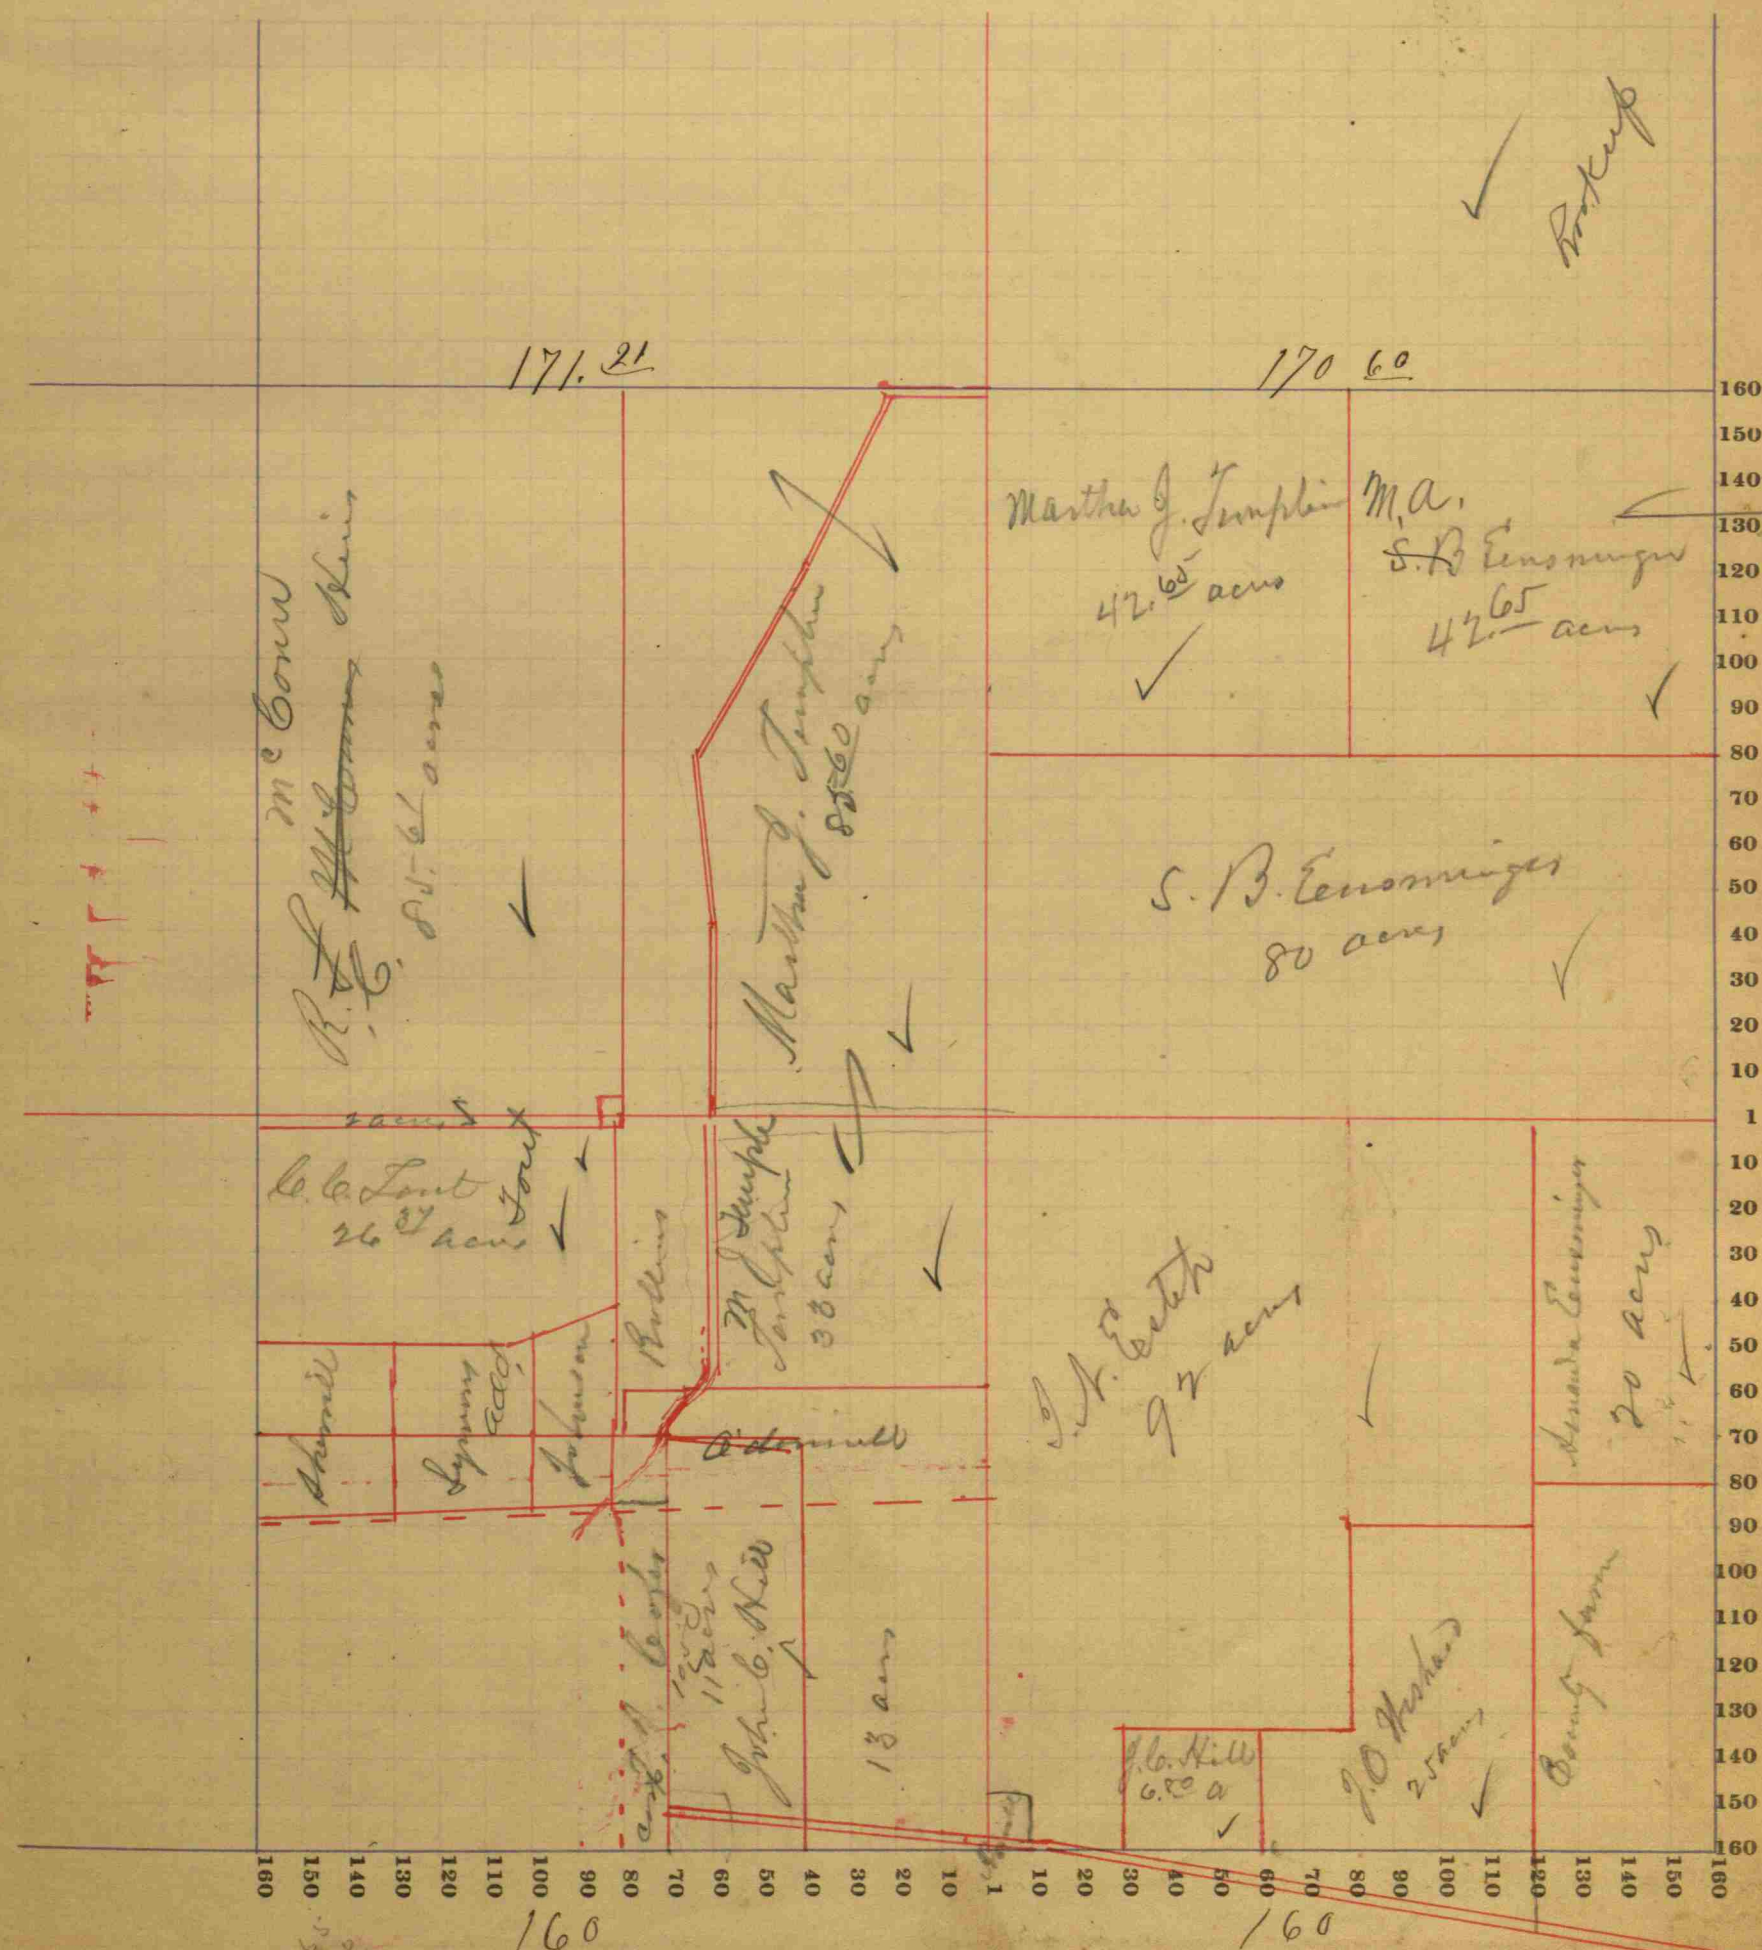 171. 21
170 60
Martha J. Templin
42.65 acres
M.A.
S.B Eensminger
42.65 acres
McConn
R. McConn Heirs
C.
85.61 acres
Martha J. Templin
85.60 acres
S. B. Eensminger
80 acres
2 acres
C.C. Tout
26 37 acres
Tout
Rollins
M J Temple
Templin
33 acres
acres
92
Amanda Eensminger
30 acres
Sherrill
Symons
add.
Johnson
O'donnell
11 acres
John C. Hill
13 acres
J.C. Hill
6.80 a
J.O
25 acres
County farm
160
150
140
130
120
110
100
90
80
70
60
50
40
30
20
10
1
10
20
30
40
50
60
70
80
90
100
110
120
130
140
150
160
160 150 140 130 120 110 100 90 80 70 60 50 40 30 20 10 1 10 20 30 40 50 60 70 80 90 100 110 120 130 140 150 160
160
160